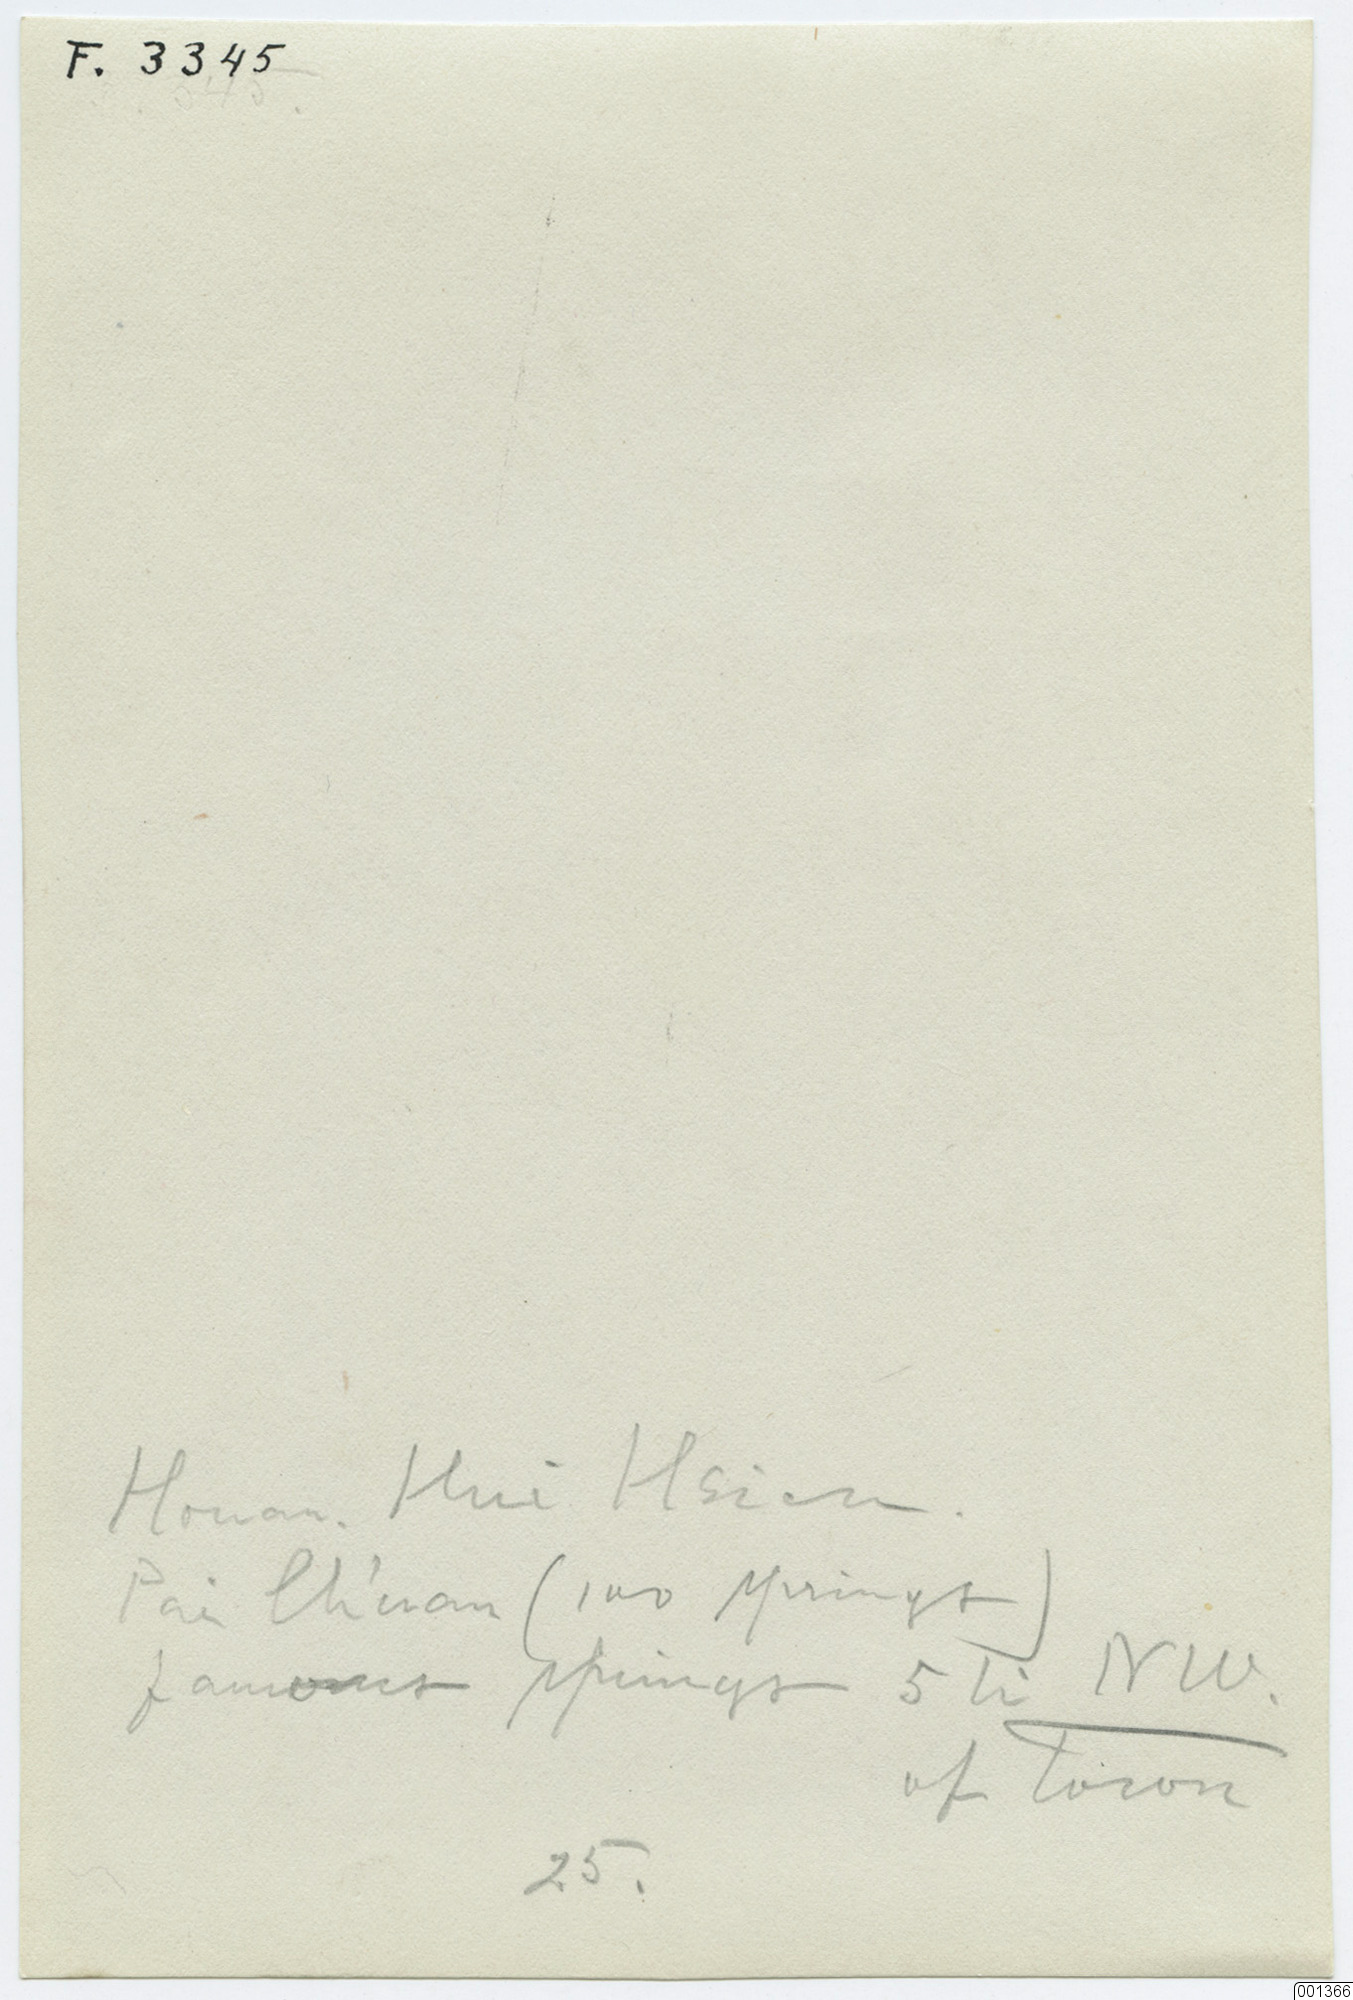 F. 3345
Honan. Hui Hsien.
Pai Ch'uan (100 springs)
famous springs 5 li NW.
of town
25.
001366